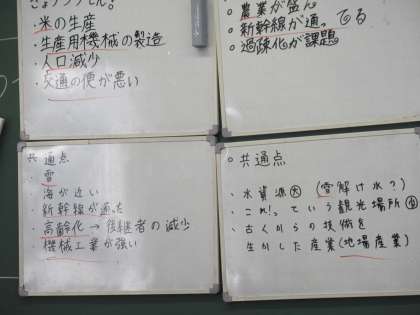 ・米の生産
・生産用機械の製造
・人口減少
・交通の便が悪い
・農業が盛ん
・新幹線が通ってる
・過疎化が課題
共通点
・雪
海が近い
・新幹線が通る
・高齢化→後継者の減少
機械工業が強い
○共通点
・水資源大 (雪解け水?)
・これ!っていう観光場所
・古くからの技術を
生かした産業(地場産業)